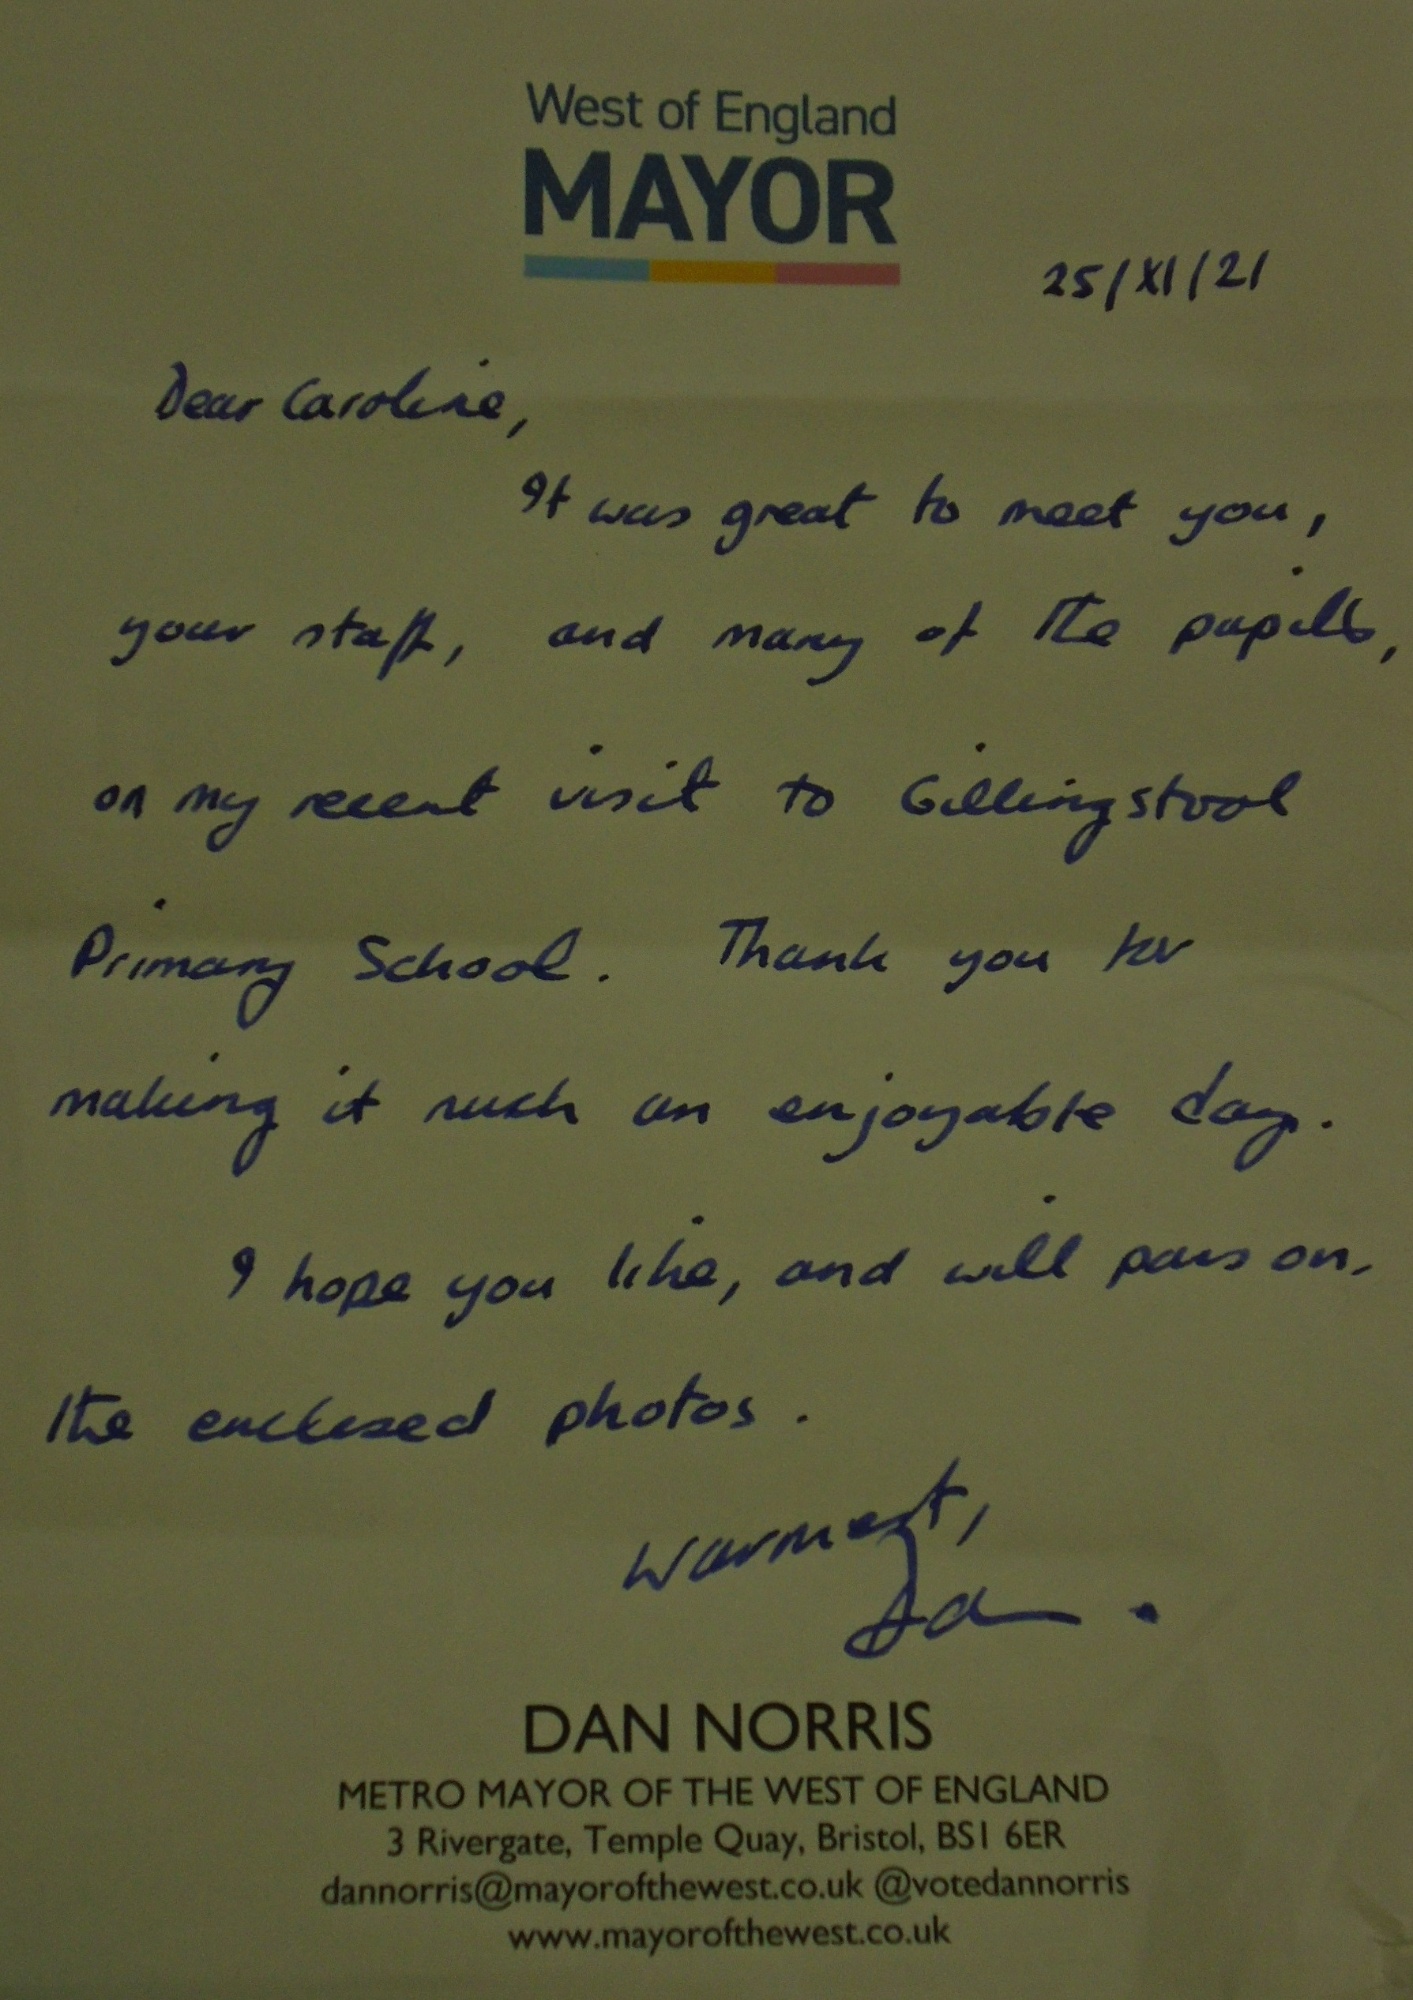 West of England
MAYOR
25/XI/21
Dear Caroline,
It was great to meet you,
your staff, and many of the pupils,
on my recent visit to Gillingstool
Primary School. Thank you for
making it such an enjoyable day.
I hope you like, and will pass on,
the enclosed photos.
Warmest,
Dan.
DAN NORRIS
METRO MAYOR OF THE WEST OF ENGLAND
3 Rivergate, Temple Quay, Bristol, BS1 6ER
dannorris@mayorofthewest.co.uk @votedannorris
www.mayorofthewest.co.uk